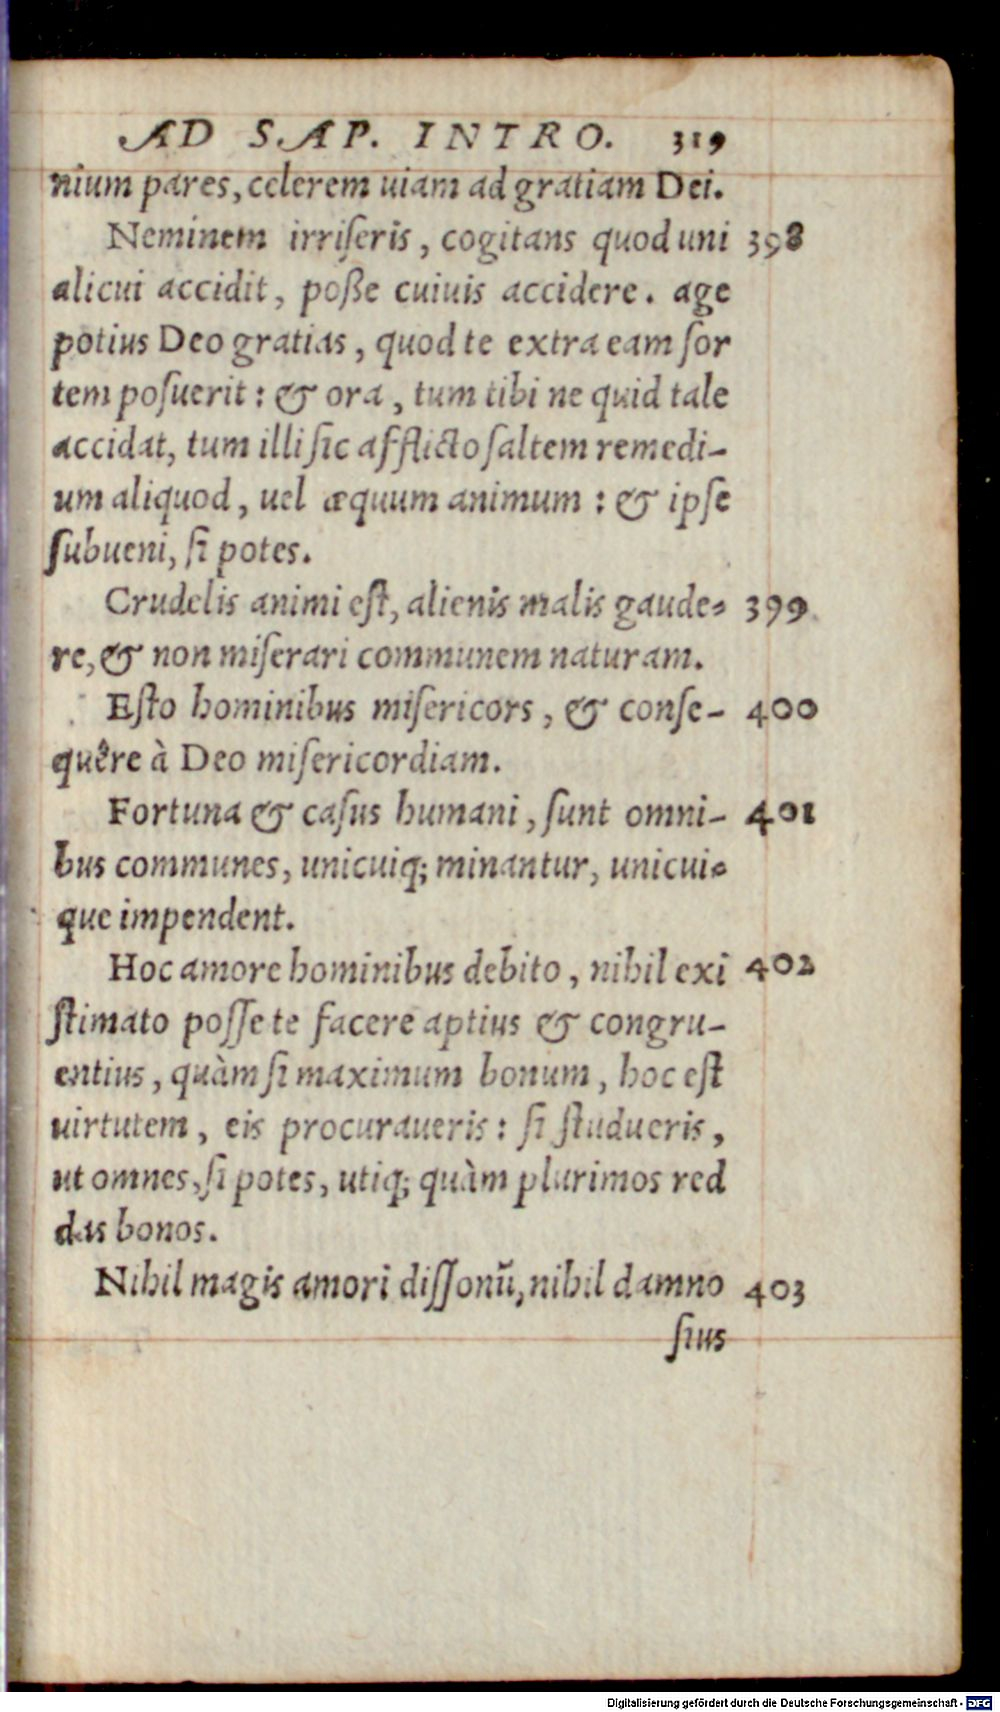 AD SAP. INTRO. 319
nium pares, celerem uiam ad gratiam Dei.
Neminem irriſeris, cogitans quod uni 398
alicui accidit, poße cuiuis accidere. age
potius Deo gratias, quod te extra eam ſor
tem poſuerit: & ora, tum tibi ne quid tale
accidat, tum illi ſic afflicto ſaltem remedi-
um aliquod, uel æquum animum: & ipſe
ſubueni, ſi potes.
Crudelis animi eſt, alienis malis gaude- 399
re, & non miſerari communem naturam.
Eſto hominibus miſericors, & conſe- 400
quêre à Deo miſericordiam.
Fortuna & caſus humani, ſunt omni- 401
bus communes, unicuiq; minantur, unicui-
que impendent.
Hoc amore hominibus debito, nihil exi 402
ſtimato poſſe te facere aptius & congru-
entius, quàm ſi maximum bonum, hoc eſt
uirtutem, eis procuraueris: ſi ſtudueris,
ut omnes, ſi potes, utiq; quàm plurimos red
das bonos.
Nihil magis amori diſſonũ, nihil damno 403
ſius
Digitalisierung gefördert durch die Deutsche Forschungsgemeinschaft - DFG